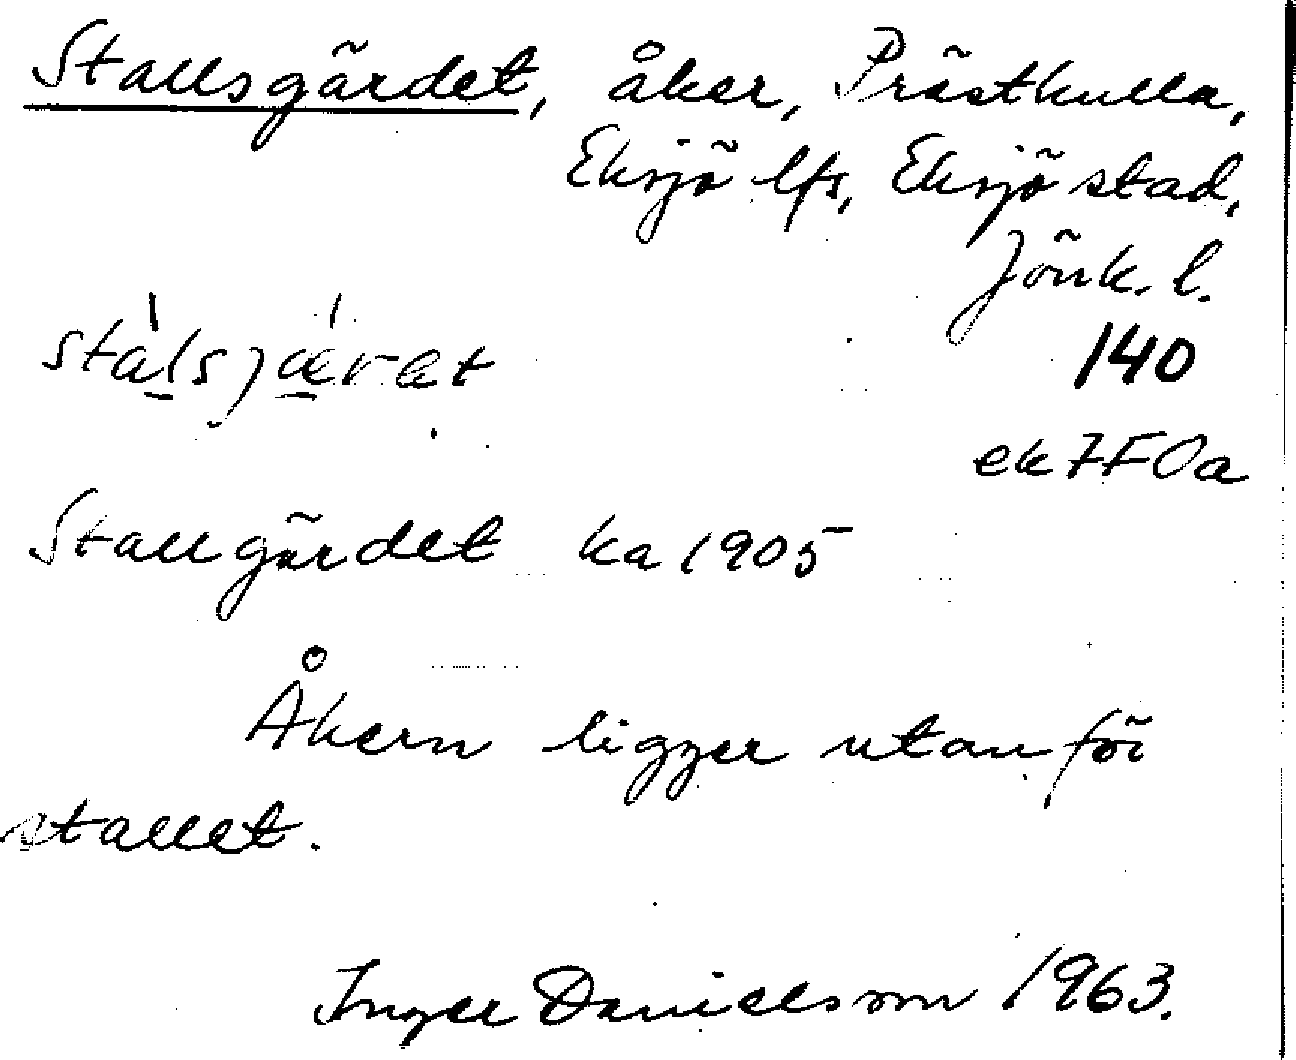 Stallsgärdet, åker, Prästkulla,
Eksjö lfs, Eksjö stad,
Jönk. l.
stálsjǽret
140
ek 7F0a
Stallgärdet ka 1905
Åkern ligger utanför
stallet.
Inger Danielsson 1963.